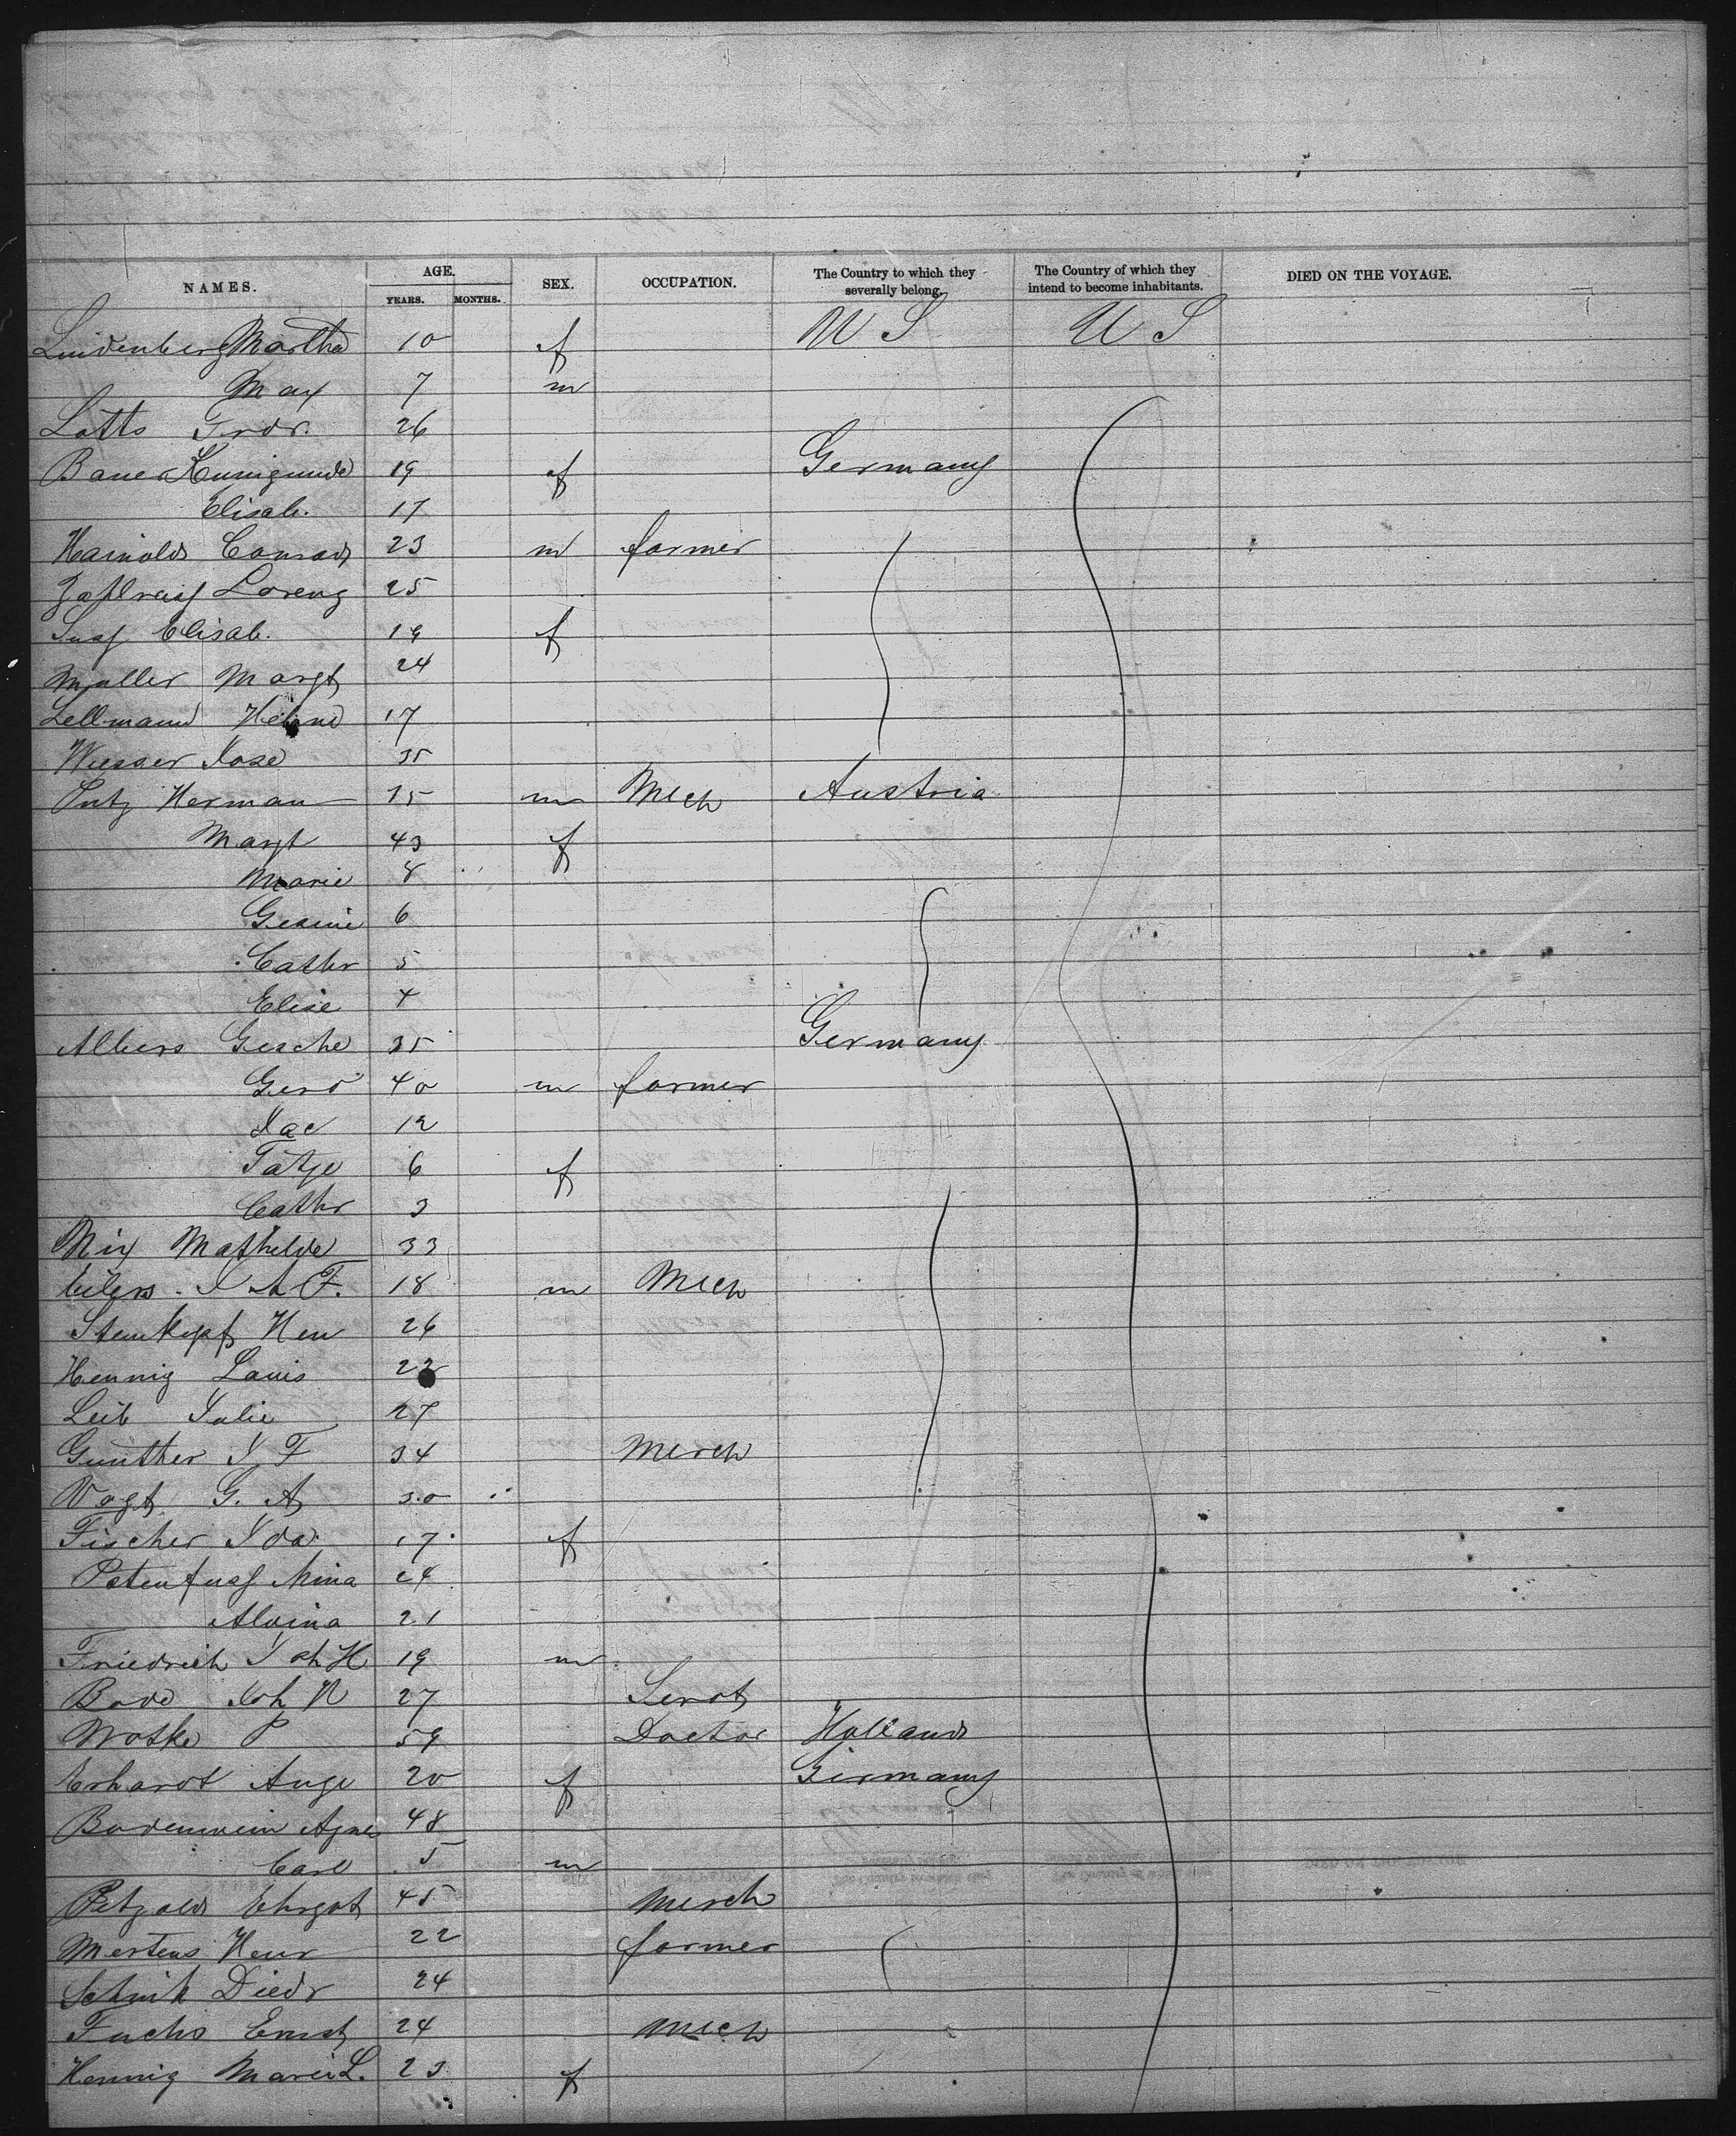 NAMES. AGE. SEX. OCCUPATION. The Country to which they severally belong. The Country of which they intend to become inhabitants. DIED ON THE VOYAGE.
YEARS. MONTHS.
Lindenberg Martha 10 f U S U S
Max 7 m
Lotts Frdr. 26
Bauer Kunigunde 19 f Germany
Elisab. 17
Hainold Conrad 23 m farmer
Lorenz 25
Elisab. 19 f
Muller Margt 24
Lellmann Helene 17
Wiesser Rosa 35
Putz Herman 15 m Mech Austria
Margt 43 f
Marie 8
Gesine 6
Cathr 5
Elise 4
Albers Gesche 35 Germany
Gerd 40 m farmer
Jac 12
Tatje 6 f
Cathr 3
Nix Mathilde 33
Eilers J A F. 18 m Mech
Steinkopf Hen 26
Hennig Louis 22
Leib Julie 27
Gunther J F 34 Merch
Vogt G. A 30
Fischer Ida 17 f
Patenfuss Mina 24
Alvina 21
Friedrich Joh H 19 m
Bode Joh N 27 Servt
Woske P 59 Doctor Holland
Erhardt Auge 20 f Germany
Bodenwein Agnes 48
Carl 5 m
Petzold Ehrgot 45 Merch
Mertens Henr 22 farmer
Schnik Diedr 24
Fuchs Ernst 24 Mech
Hennig Marie L. 23 f